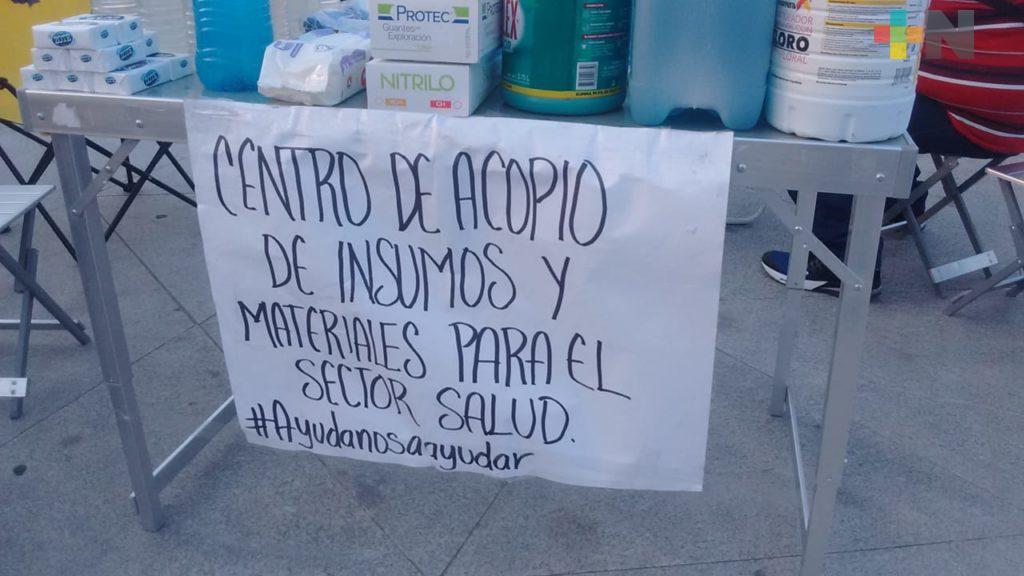 PROTEC
Guantes
Exploración
NITRILO
CENTRO DE ACOPIO
DE INSUMOS Y
MATERIALES PARA EL
SECTOR SALUD.
#Ayudanosaayudar
ORO
N